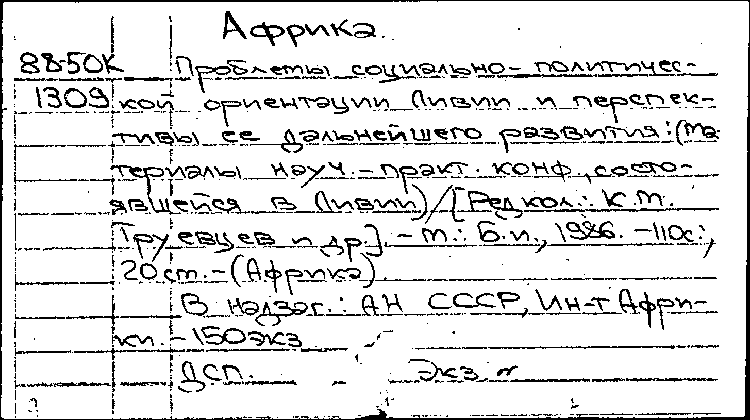 Африка.
88-50К Проблемы социально-политичес-
1309 кой ориентации Ливии и перспек-
тивы ее дальнейшего развития: (Ма-
териалы науч.-практ. конф., состо-
явшейся в Ливии) / [Редкол.: К.М.
Труевцев и др.]. - М.: Б.и., 1986. - 110с.;
20 см. - (Африка).
В надзаг.: АН СССР, Ин-т Афри-
ки. - 150 экз
ДСП. Экз. №